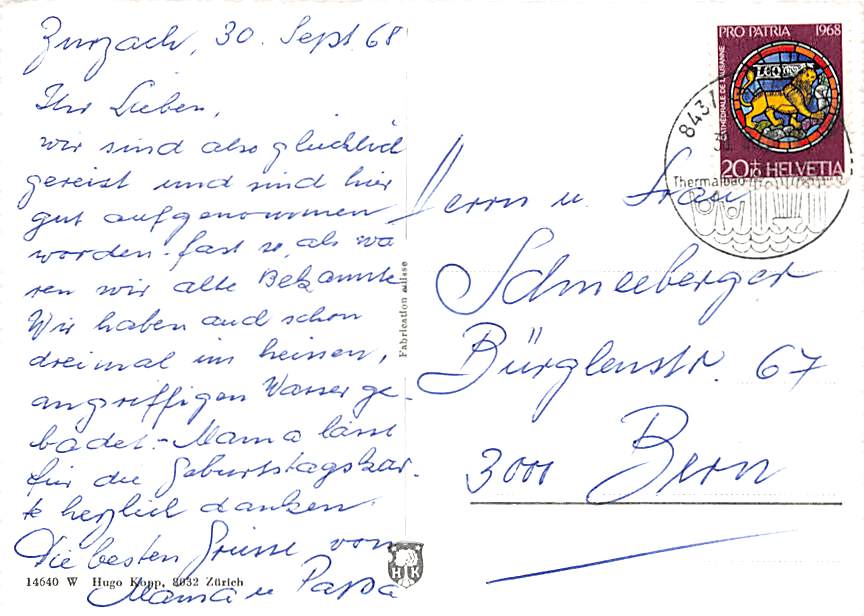 Zurzach, 30. Sept 68
Ihr Lieben,
wir sind also glücklich
gereist und sind hier
gut aufgenommen
worden - fast so, als wä
ren wir alte Bekannte
Wir haben auch schon
dreimal im heissen,
angriffigen Wasser ge-
badet. - Mama lässt
für die Geburtstagskar-
te herzlich danken.
Die besten Grüsse von
Mama u Papa
14640 W Hugo Kopp, 8032 Zürich
Fabrication suisse
H K
PRO PATRIA 1968
CATHÉDRALE DE LAUSANNE
LEO
20+10 HELVETIA
843
30.
Thermalbad
Herrn u. Frau
Schneeberger
Bürglenstr. 67
3000 Bern